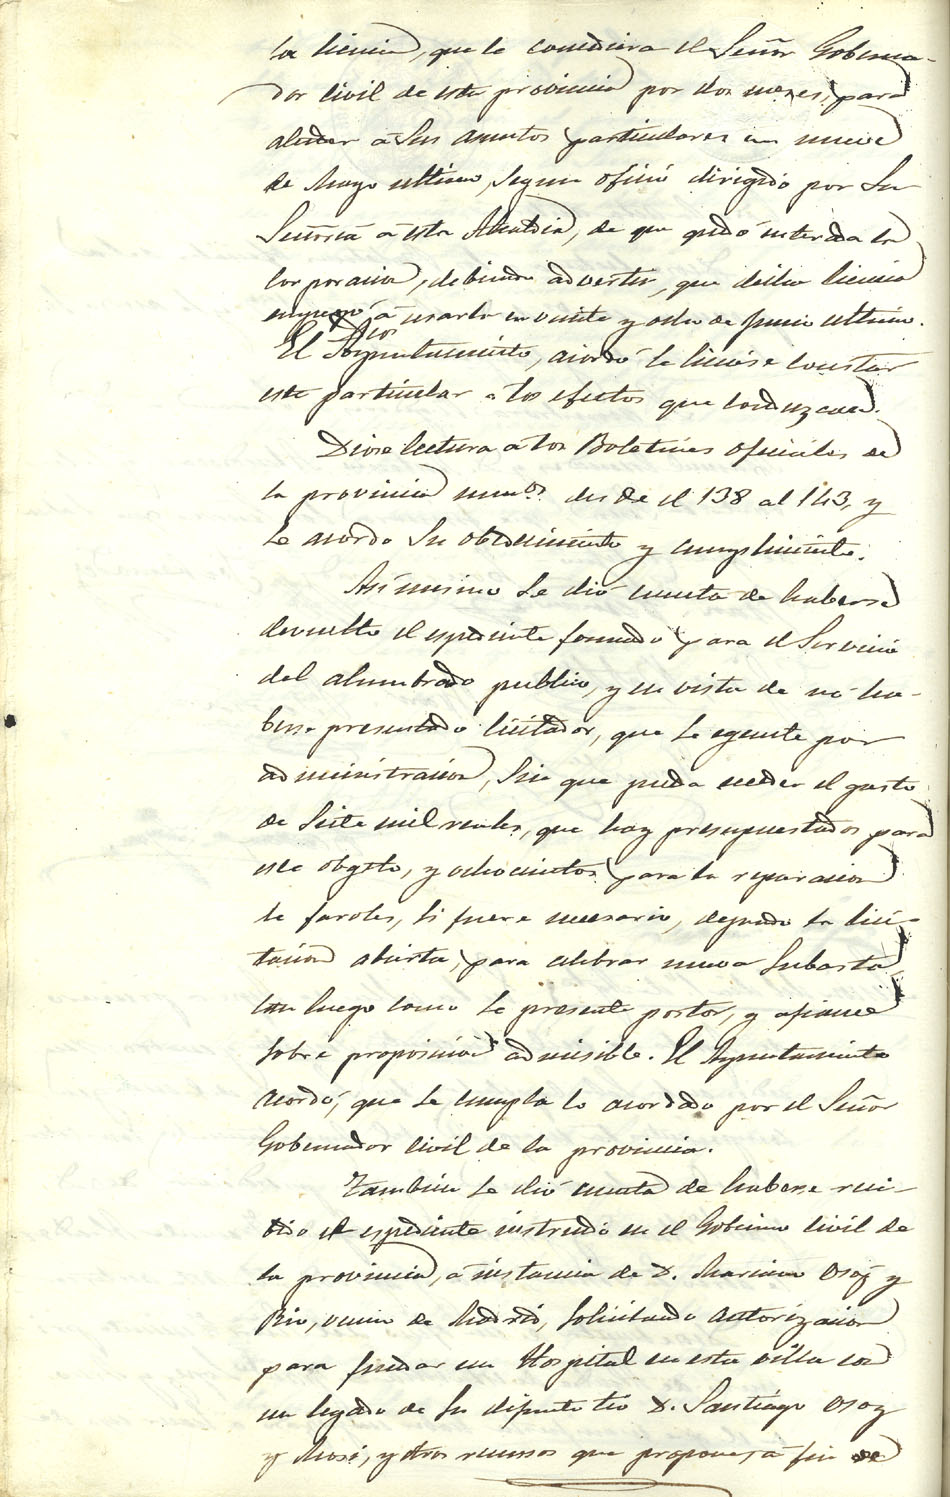 la licencia, que le concediera el Señor Goberna-
dor civil de esta provincia por dos meses, para
atender á sus asuntos particulares en nueve
de Mayo ultimo, segun oficio dirigido por Su
Señoria á esta Alcaldia, de que quedó enterada la
corporacion, debiendo advertir, que dicha licencia
empezó á usarla en veinte y ocho de Junio ultimo.
El Ayuntamiento, acordó se hiciese constar
este particular á los efectos que conduzcan.
Diose lectura á los Boletines oficiales de
la provincia numos. desde el 138 al 143, y
se acordo su obedecimiento y cumplimiento.
Asi mismo se dió cuenta de haberse
devuelto el espediente formado para el servicio
del alumbrado publico, y en vista de no ha-
berse presentado licitador, que se egecute por
administracion, sin que pueda esceder el gasto
de siete mil reales, que hay presupuestados para
este obgeto, y ochocientos para la reparacion
de faroles, si fuere necesario, dejando la lici-
tacion abierta, para celebrar nueva subasta,
tan luego como se presente postor, y afiance
sobre proposicion admisible. El Ayuntamiento
acordó, que se cumpla lo acordado por el Señor
Gobernador civil de la provincia.
Tambien se dió cuenta de haberse reci-
bido el espediente instruido en el Gobierno civil de
la provincia, á instancia de D. Mariano Osoz y
Rio, vecino de Madrid, solicitando autorizacion
para fundar un Hospital en esta villa con
un legado de su difunto tio D. Santiago Osoz
y Mosi, y otros recursos que propone, á fin de